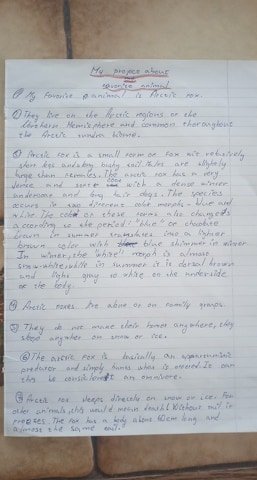 My project about
my
favorite animal
① My favorite animal is Arctic fox.
② They live on the Arctic regions of the
Northern Hemisphere and common thoroughout
the Arctic tundra biome.
③ Arctic fox is a small form of fox with
short legs and body tail. Males are slightly
large than females. The arctic fox has a very
dense and soft coat with a dense winter
underware and long hair. The species
occurs in two different color morphs - blue and
white. The color of these forms also changes
according to the period. "blue" or chocolate
brown in summer into a lighter
brown color with blue shimmer in winer.
In winter, the "white" morph is almost
snow-white, while in summer it is dorsal brown
and light gray to white on the underside
of the body.
④ Arctic foxes. Are alone or on family groups.
⑤ They do not make their homes anywhere, they
sleep anywher on snow or ice.
⑥ The arctic fox is basically an
predator and simply hunts when is. It can
thus be considered an omnivore.
⑦ Arctic fox sleeps directly on snow or ice. For
other animals, this would mean death! Without tail it
freezes. The fox has a body about 60 cm long and
almost the same tail.